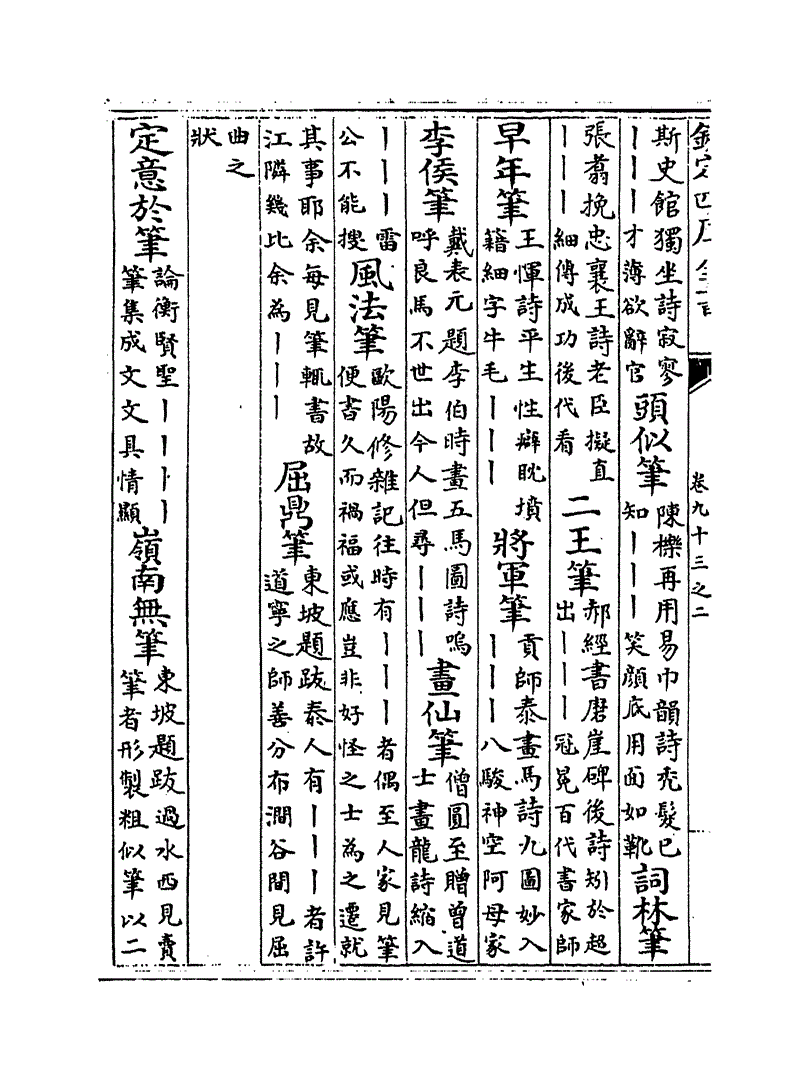 欽定四庫全書
卷九十三之二
斯史館獨坐詩寂寥
丨丨丨才薄欲辭官
頭似筆
陳櫟再用易巾韻詩禿髮已
知丨丨丨笑顏底用面如靴
詞林筆
張翥挽忠襄王詩老臣擬直
丨丨丨細傳成功後代看
二王筆
郝經書磨崖碑後詩矧於超
出丨丨丨冠冕百代書家師
早年筆
王惲詩平生性癖眈墳
籍細字牛毛丨丨丨
將軍筆
貢師泰畫馬詩九圖妙入
丨丨丨八駿神空阿母家
李侯筆
戴表元題李伯時畫五馬圖詩嗚
呼良馬不世出今人但尋丨丨丨
畫仙筆
僧圓至贈曾道
士畫龍詩縮入
丨丨丨雷
公不能搜
風法筆
歐陽修雜記往時有丨丨丨者偶至人家見筆
便書久而禍福或應豈非好怪之士為之遷就
其事耶余每見筆輒書故
江隣幾比余為丨丨丨
屈鼎筆
東坡題跋泰人有丨丨丨者許
道寧之師善分布澗谷間見屈
曲之
狀
定意於筆
論衡賢聖丨丨丨丨
筆集成文文具情顯
嶺南無筆
東坡題跋過水西見賣
筆者形製粗似筆以二